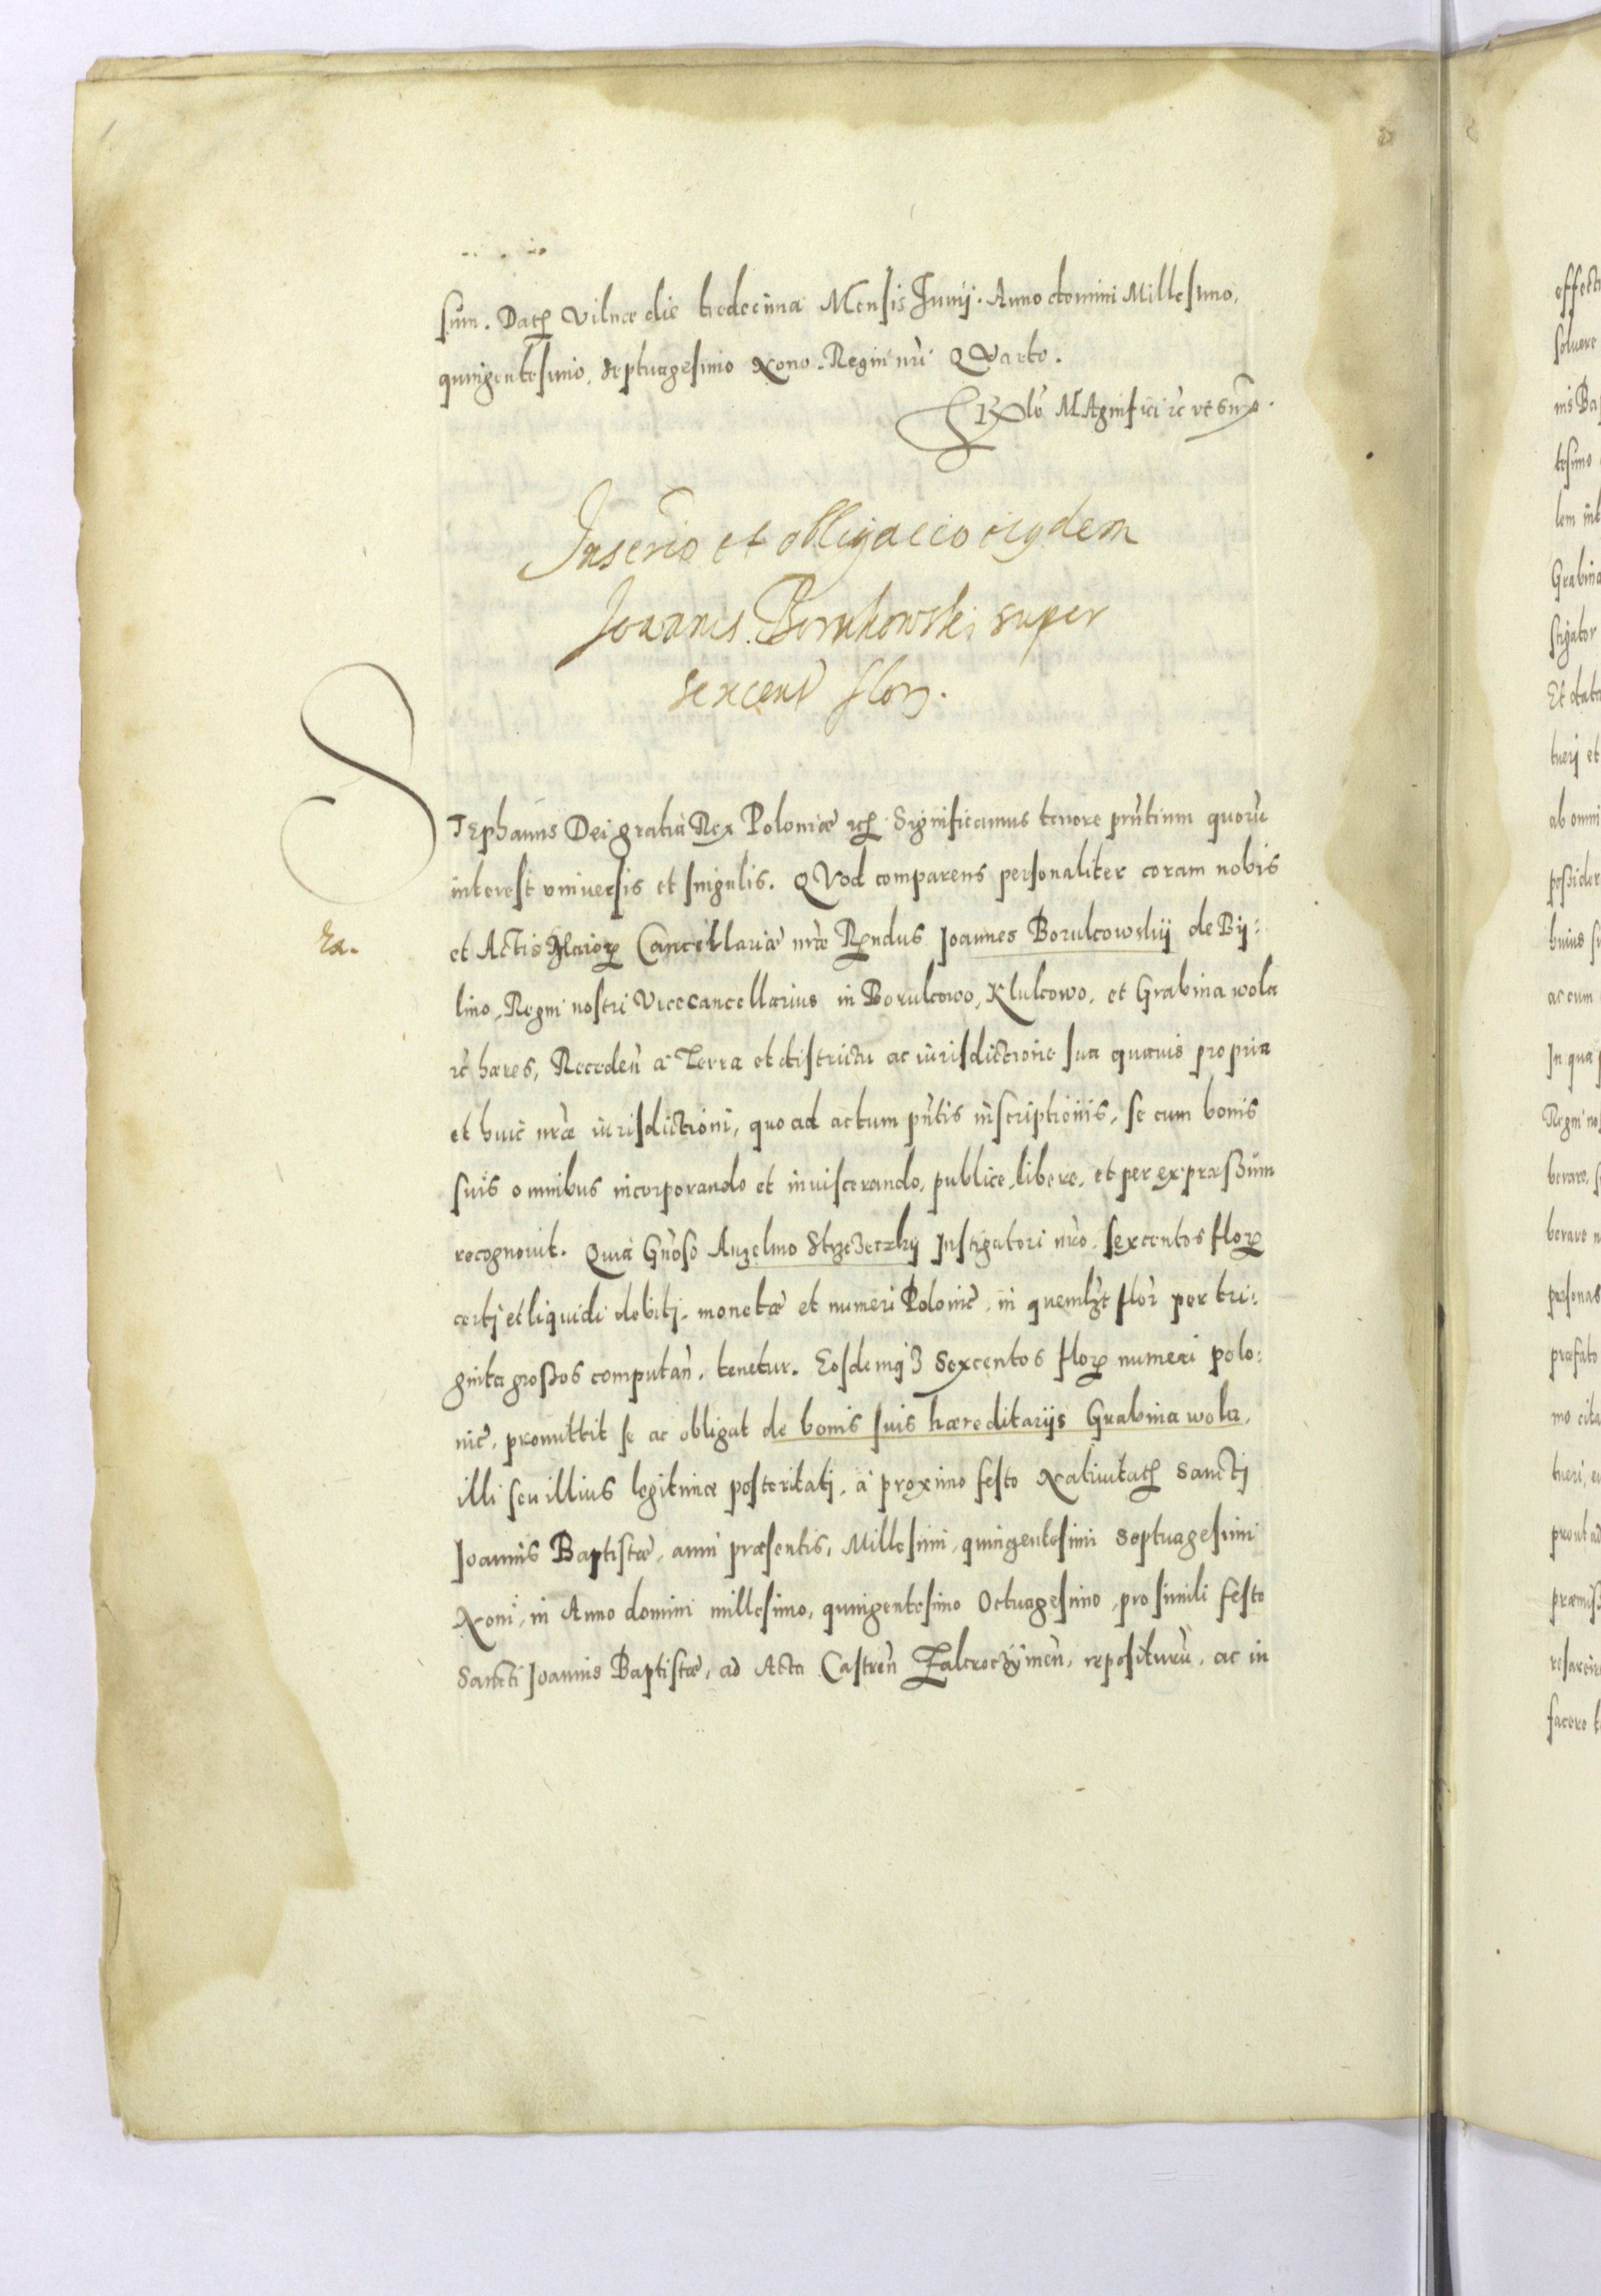 sum. Datꝭ Vilnæ die tredecima Mensis Junij. Anno domini Millesimo,
quingentesimo, septuagesimo Nono. Regni nrĩ QVarto.
Rlõ MAgnifici rc̃ vt supra.
Inscrio et obligacio eiqdem
Joannis Borukowski super
sexcent florꝫ.
STephanus Dei gratia Rex Poloniæ rcꝭ Significamus tenore pñtium quorũ
interest vniuersis et singulis. QVod comparens personaliter coram nobis
et Actis Maiorꝝ Cancellariæ nr̃æ Rꝓndus Joannes Borukowskij de Bij:
lino, Regni nostri Vicecancellarius in Borukowo, Klukowo, et Grabina wola
rc̃ hæres, Receden̄ a Terra et districtu ac iurisdictione sua quauis propria
et huic nr̃æ iurisdictioni, quo ad actum pñtis inscriptionis, se cum bonis
suis omnibus incorporando et inuiscerando, publice, libere, et per expræssum
recognouit. Quia Gñoso Anzelmo Strzezeczky Instigatori nr̃o, sexcentos florꝝ
certi et liquidi debiti, monetæ et numeri Polonic̃, in quemlzt flor̃ per tri:
ginta grossos computan̄, tenetur. Eosdemqꝫ Sexcentos florꝝ numeri polo:
nic̃, promittit se ac obligat de bonis suis hæreditarijs Grabina wola,
illi seu illius legitimæ posteritati, a proximo festo Natiuitatꝭ Sancti
Joannis Baptistæ, anni præsentis, Millesimi, quingentesimi Septuagesimi
Noni, in Anno domini millesimo, quingentesimo Octuagesimo, pro simili festo
Sancti Joannis Baptistæ, ad Acta Castren̄ Zakroczÿmen̄, repositurũ, ac in